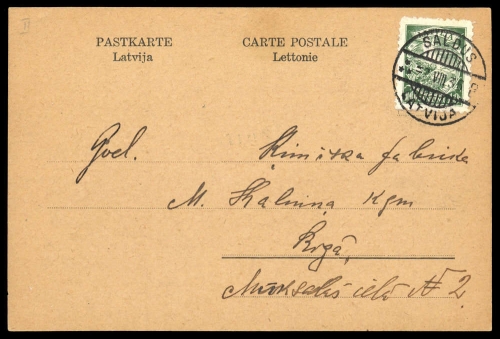 PASTKARTE
Latvija
CARTE POSTALE
Lettonie
SALDUS
LATVIJA
God.
Ķīmiska fabrika
M. Kalniņa kgm
Rīgā,
ielā № 2